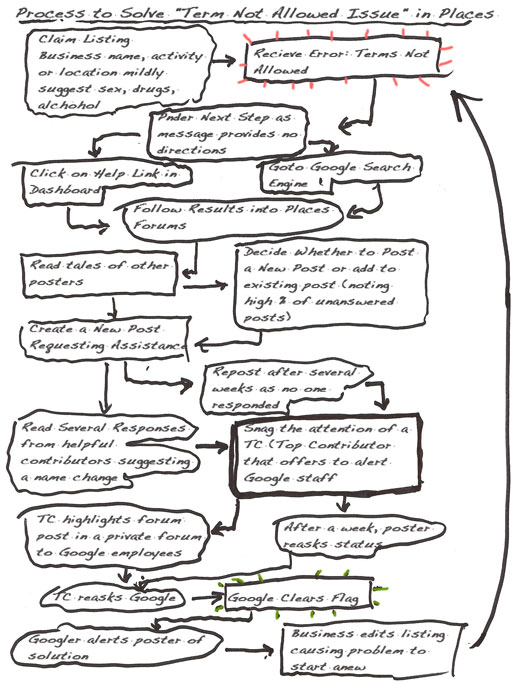 Process to Solve "Term Not Allowed Issue" in Places
Claim Listing
Business name, activity
or location mildly
suggest sex, drugs,
alchohol
Recieve Error: Terms Not
Allowed
Pnder Next Step as
message provides no
directions
Click on Help Link in
Dashboard
Goto Google Search
Engine
Follow Results into Places
Forums
Read tales of other
posters
Decide Whether to Post
a New Post or add to
existing post (noting
high % of unanswered
posts)
Create a New Post
Requesting Assistance
Repost after several
weeks as no one
responded
Read Several Responses
from helpful
contributors suggesting
a name change
Snag the attention of a
TC (Top Contributor
that offers to alert
Google staff
TC highlights forum
post in a private forum
to Google employees
After a week, poster
reasks status
TC reasks Google
Google Clears Flag
Googler alerts poster of
solution
Business edits listing
causing problem to
start anew